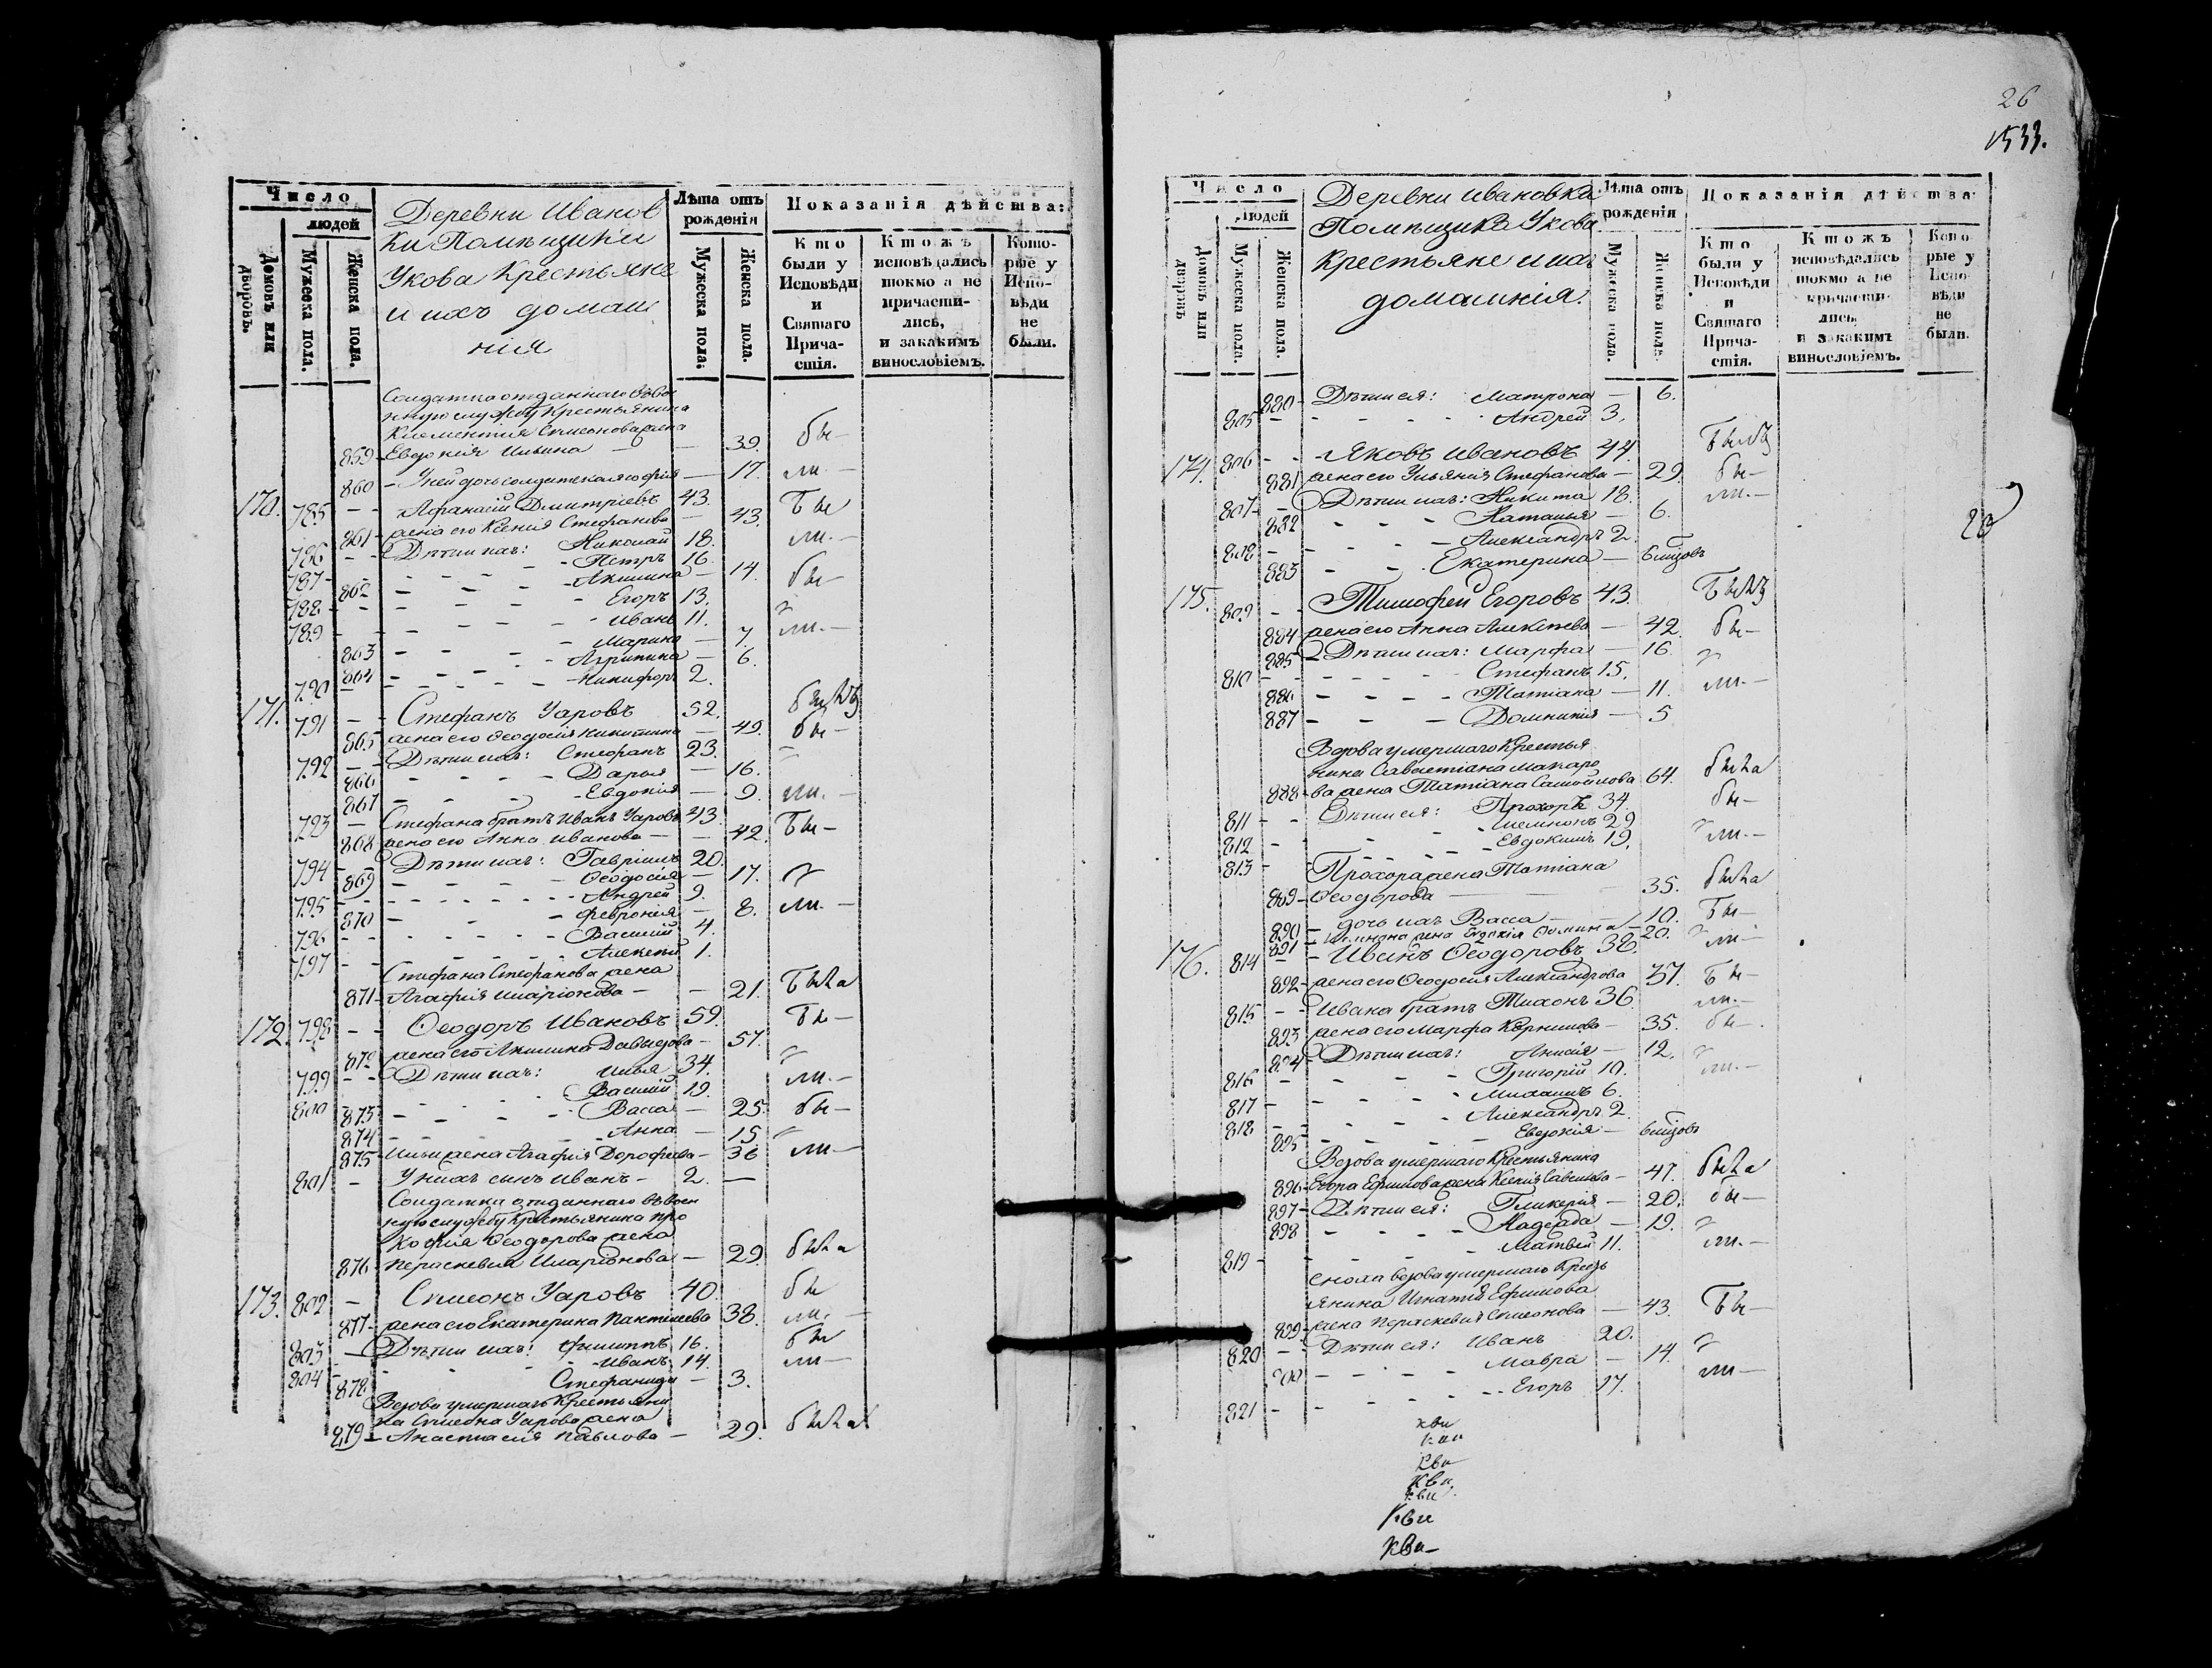 Число
людей
Домовъ или дворовъ.
Мужеска пола.
Женска пола.
Деревни Иванов
ки Помѣщика
Укова Крестьяне
и ихъ домаш
нія
Лѣта отъ рожденія
Мужеска пола.
Женска пола.
Показанія дѣйства:
Кто были у Исповѣди и Святаго Причастія.
Ктожъ исповѣдались токмо а не причастились, и закакимъ винословіемъ.
Которые у Исповѣди не были.
Солдатка отданнаго въ во
нную службу Крестьянина
Климентія Симеонова жена
859 Евдокія Ильина — 39. бы—
860 — У ней дочь солдатская Софія — 17. ли. —
170. 785 — Афанасій Дмитріевъ 43. Бы
861 жена его Ксенія Стефанова — 43.
786 — Дѣти ихъ: Николай 18. ли. —
787 — Петръ 16.
862 — Акилина — 14. бы—
788 — Егоръ 13.
789 — Иванъ 11.
863 — Марина — 7. ли. —
864 — Агрипина — 6.
790 — Никифоръ 2.
171. 791 — Стефанъ Уаровъ 52.
865 жена его Ѳеодосія Никитина — 49. бы—
792 — Дѣти ихъ: Стефанъ 23.
866 — Дарья — 16.
867 — Евдокія — 9. ли. —
793 — Стефана братъ Иванъ Уаровъ 43.
868 жена его Анна Иванова — 42. Бы—
794 — Дѣти ихъ: Гавріилъ 20.
869 — Ѳеодосія — 17.
795 — Андрей 9.
870 — Февронія — 8. ли. —
796 — Василій 4.
797 — Алексѣй 1.
Стефана Стефанова жена
871 Агафія Иларіонова — 21. Была
172. 798 — Ѳеодоръ Ивановъ 59. Бы—
872 жена его Акилина Давыдова — 57.
799 — Дѣти ихъ: Илья 34.
800 Василій 19. ли. —
873 — Васса — 25. бы—
874 — Анна — 15.
875 Ильи жена Агафія Дорофеева — 36 ли—
801 — У нихъ сынъ Иванъ — 2. —
Солдатка отданнаго въ воен
ную службу Крестьянина Про
кофія Ѳеодорова жена
876 Параскевія Иларіонова — 29. была
173. 802 — Симеонъ Уаровъ 40. бы
877 жена его Екатерина Пантелеева 38. ли. —
803 — Дѣти ихъ: Филиппъ 16. бы
804 — Иванъ 14. ли—
878 Стефанида — 3.
Вдова умершаго Крестьяни
на Симеона Уарова жена
879 — Анастасия Павлова — 29. была
26
1533.
Число
людей
Домовъ или дворовъ
Мужеска пола.
Женска пола.
Деревни Ивановка
Помѣщика Укова
Крестьяне и ихъ
домашнія.
Лѣта отъ рожденія
Мужеска пола.
Женска пола.
Показанія дѣйства
Кто были у Исповѣди и Святаго Причастія.
Ктожъ исповѣдались токмо а не причастились, и закакимъ винословіемъ.
Которые у Исповѣди не были.
880 — Дѣти ея: Матрона — 6.
805 — Андрей 3.
174. 806 — Яковъ Ивановъ 44.
881 жена его Ульянія Стефанова — 29. бы—
807 — Дѣти ихъ: Никита 18. ли. —
882 — Наталья — 6.
808 — Александръ 2.
883 — Екатерина — 6 мцовъ
175. 809 — Тимофей Егоровъ 43.
884 жена его Анна Алексѣева — 42. бы—
885 — Дѣти ихъ: Марфа — 16.
810 — Стефанъ 15.
886 — Татіана — 11. ли. —
887 — Домникія — 5
Вдова умершаго Крестья
нина Савастіана Макаро
888 ва жена Татіана Самойлова 64. была
811 — Дѣти ея: Прохоръ 34. бы—
812 — 29.
813 — Евдокимъ 19. ли. —
Прохора жена Татіана
889 Ѳеодорова — 35. была
890 — дочь ихъ Васса — 10. Бы—
891 — жена Евдокія Фомина — 20.
176. 814 — Иванъ Ѳеодоровъ 38. ли—
892 жена его Ѳеодосія Александрова 37. Бы—
815 — Ивана братъ Тихонъ 36. ли. —
893 жена его Марфа Корнилова — 35. бы—
894 Дѣти ихъ: Анисія — 12.
816 — Григорій 10. ли. —
817 — Михаилъ 6.
818 — Александръ 2.
895 — Евдокія — 6 мцовъ
Вдова умершаго Крестьянина
896 Егора Ефимова жена Ксенія Савельева — 47. была
897 — Дѣти ея: Гликерія — 20. бы—
898 — Надежда — 19.
819 — Матвей 11. ли. —
Сноха вдова умершаго Кресть
янина Игнатія Ефимова
899 жена Параскевія Симеонова — 43. Бы—
820 — Дѣти ея: Иванъ 20.
900 — Мавра — 14. ли—
821 — Егоръ 17.